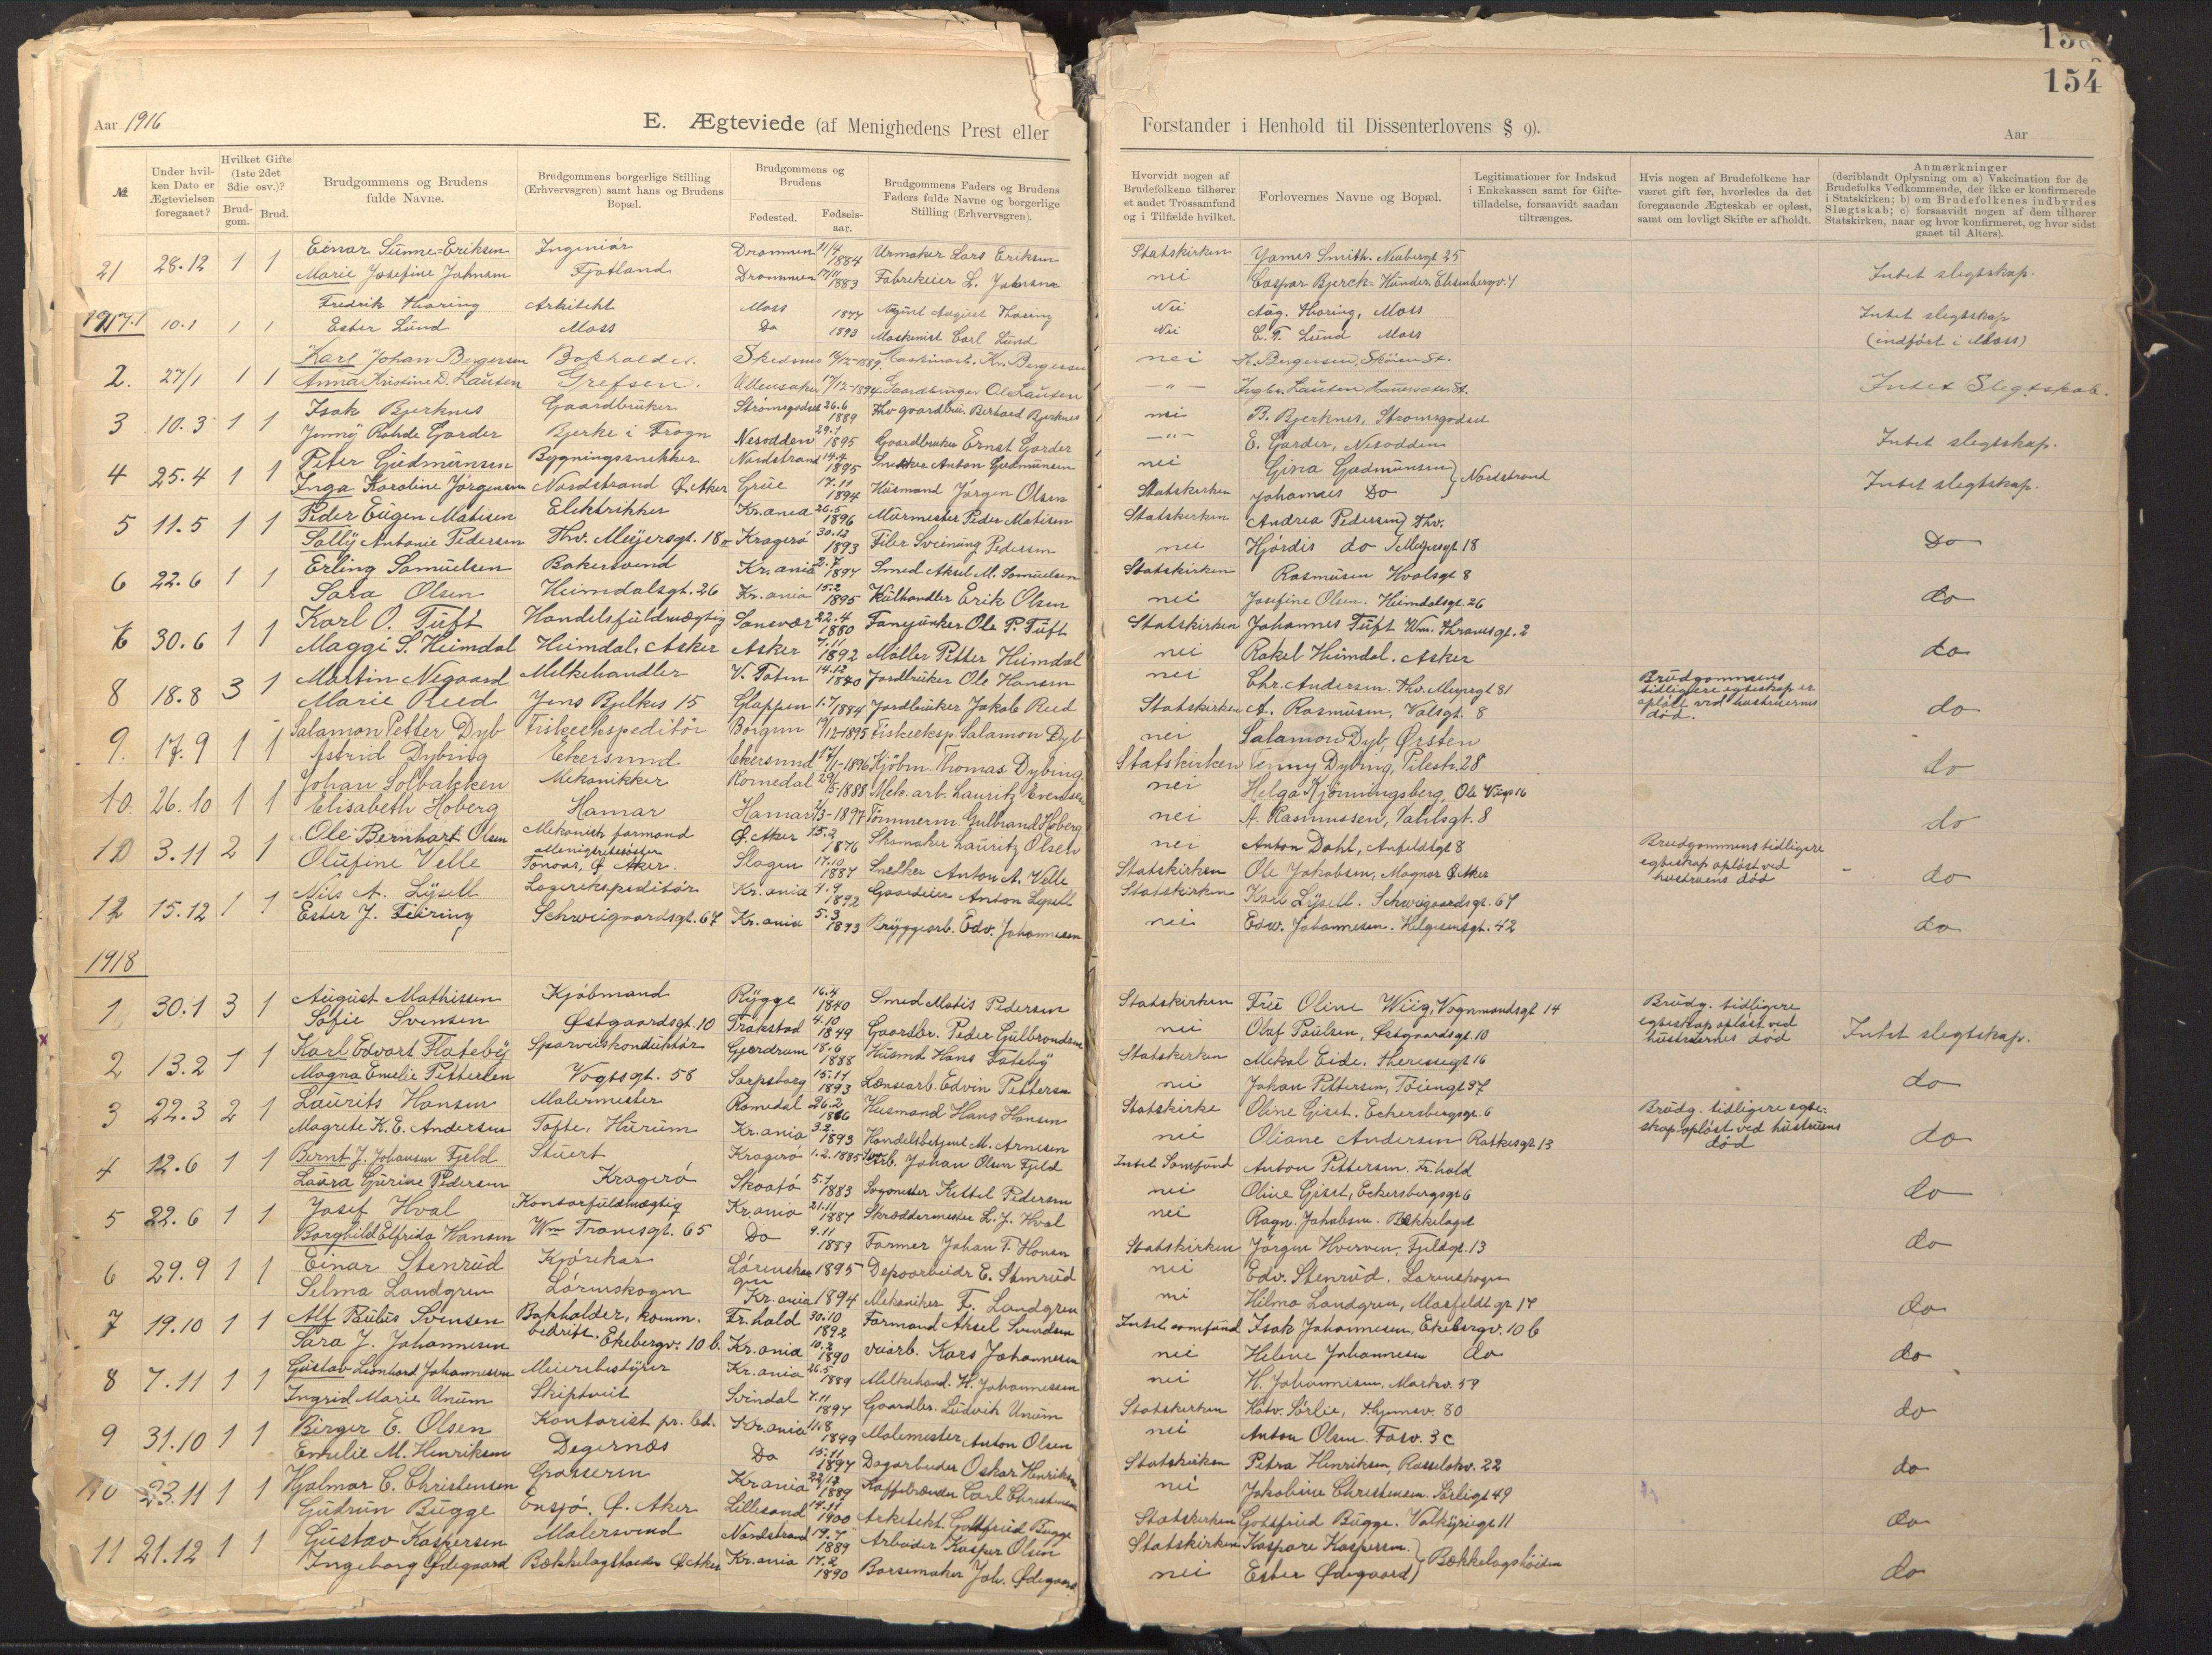 Aar 1916
E. Ægteviede (af Menighedens Prest eller
№
Under hvil-
ken Dato er
Ægtevielsen
foregaaet?
Hvilket Gifte
(1ste 2det
3die osv.)?
Brud-
gom.
Brud.
Brudgommens og Brudens
fulde Navne.
Brudgommens borgerlige Stilling
(Erhvervsgren) samt hans og Brudens
Bopæl.
Brudgommens og
Brudens
Fødested.
Fødsels-
aar.
Brudgommens Faders og Brudens
Faders fulde Navne og borgerlige
Stilling (Erhvervsgren).
21 28.12 1 1 Einar Sunne=Eriksen Ingeniör Drammen 11/4 1884 Urmaker Lars Eriksen
Marie Josefine Johnsen Fjotland Drammen 17/11 1883 Fabrekeier L. Johnsen
1917.1 10.1 1 1 Fredrik Thoring Arkitekt Moss 1877 August Thoring
Ester Lund Moss Do 1893 Maskenist Carl Lund
2. 27/1 1 1 Karl Johan Bergersen Bokholder. Skedsmo 1889 Maskinarb. Kr. Bergersen
Anna Kristine D. Lausen Grefsen. Ullensaker 17/12-1894 Gaardbruger Ole Lausen
3 10.3 1 1 Isak Bjerknes Gaardbruker Strömsgodset 26.6 1889 Fhv gaardbru. Berhard Bjerknes
Jenny Rohde Garder Bjerke i Frogn Nesodden 29.1 1895 Gaardbruker Ernst Garder
4 25.4 1 1 Peter Gudmunsen Bygningssnekker Nordstrand 14.7 1895 Snekker Anton Gudmunsen
Inga Karoline Jörgensen Nordstrand Ø. Aker Grue 17.11 1894 Husmand Jörgen Olsen
5 11.5 1 1 Peder Eugen Matisen Elektrikker Kr.ania 26.5 1896 Murmester Peder Matisen
Sally Antonie Pedersen Thv. Meyersgt. 18 Kragerö 30.12 1893 Filer Sveinung Pedersen
6 22.6 1 1 Erling Samuelsen Bakersvend Kr.ania 2.7 1897 Smed Aksel M. Samuelsen
Sara Olsen Heimdalsgt. 26 Kr.ania 15.2 1895 Kulhandler Erik Olsen
7 30.6 1 1 Karl O. Tuft Handelsfuldmægtig Sansvær 22.4 1880 Fanejunker Ole P. Tuft
Maggi S. Heimdal Heimdal, Asker Asker 7.11 1892 Möller Petter Heimdal
8 18.8 3 1 Martin Negaard Melkehandler V. Toten 14.12 1840 Jordbruker Ole Hansen
Marie Reed Jens Bjelkes 15 Gloppen 1.7 1884 Jordbruker Jakob Reed
9. 17.9 1 1 Salamon Petter Dyb Fiskeekspeditör Borgun 19/12-1895 Fiskeeksp. Salamon Dyb
Astrid Dybing Ekersund Ekersund 17/1-1896 Kjöbm. Thomas Dybing.
10. 26.10 1 1 Johan Solbakken Mekanikker Romedal 29/5-1888 Mek. arb. Lauritz Evensen
Elisabeth Hoberg Hamar Hamar 2/3-1897 Tömmerm. Gulbrand Hoberg
11 3.11 2 1 Ole Bernhart Olsen Mekanisk formand Ø. Aker 15.2 1876 Skomaker Lauritz Olsen
Olufine Velle Menighetssöster Tonaas, Ø Aker. Slagen 17.10 1887 Snekker Anton A. Velle
12 15.12 1 1 Nils A. Lysell Lagerekspeditör Kr.ania 4.9 1892 Gaardeier Anton Lysell
Ester J. Schweigaardsgt. 67 Kr.ania 5.3 1893 Bryggearb. Edv. Johannesen
1918
1 30.1 3 1 August Mathissen Kjöbmand Rygge 16.4 1840 Smed Matis Pedersen
Sofie Svensen Østgaardsgt. 10 Trøkstad 4.10 1849 Gaardbr. Peder Gulbrandsen
2 13.2 1 1 Karl Edvart Flateby Sporveiskonduktör Gjerdrum 18.6 1888 Husmd Hans Flateby
Magna Emelie Pettersen Vogtsgt. 58 Sarpsborg 15.11 1893 Lænsearb. Edvin Pettersen
3 22.3 2 1 Laurits Hansen Malermester Romedal 26.2 1866 Husmand Hans Hansen
Magrete K. E. Andersen Tofte, Hurum Kr.ania 3.2 1893 Handelsbetjent M. Arnesen
4 12.6 1 1 Bernt J. Johansen Fjeld Stuert Kragerö 1.2.1885 Arb. Johan Olsen Fjeld
Laura Gurine Pedersen Kragerö Skaatö 5.1 1883 Sagmester Kittel Pedersen
5 22.6 1 1 Josef Hval Kontorfuldmægtig Kr.ania 21.11 1887 Skræddermester L. J. Hval
Borghild Elfrida Hansen Wm Tranesgt. 65 Do 9.11 1889 Former Johan T. Hansen
6 29.9 1 1 Einar Stenrud Kjörekar Lörenskogen 1895 Depoarbeider E. Stenrud
Selma Landgren Lörenskogen Kr.ania 1894 Mekaniker F. Landgren
7 19.10 1 1 Alf Paulus Svensen Bokholder, komm. Fr.hald 30.10 1892 Formand Aksel Svendsen
Sara J. Johannesen bedrift. Ekebergv. 10 b. Kr.ania 10.2 1890 veiarb. Lars Johannesen
8 7.11 1 1 Gustav Leonhard Johannesen Meieribestyrer Kr.ania 26.5 1889 Melkehand. H. Johannessen
Ingrid Marie Unum Skiptveit Svindal 7.11 1897 Gaardbr. Ludvik Unum
9 31.10 1 1 Birger E. Olsen Kontorist pr. bd. Kr.ania 11.8 1899 Malemester Anton Olsen
Emelie M. Henriksen Degernæs Do 15.11 1897 Dagarbeider Oskar Henriksen
10 23.11 1 1 Hjalmar C. Christensen Grosserer Kr.ania 22/12 1889 Kaffebrænder Carl Christensen
Gudrun Bugge Ensjö. Ø. Aker Lillesand 14.11 1900 Arkitekt Gottfried Bugge
11 21.12 1 1 Gustav Kaspersen Malersvend Nordstrand 19.7 1889 Arbeider Kasper Olsen
Ingeborg Ødegaard Bækkelagshöiden Ø Aker Kr.ania 17.2 1890 Börsemaker Joh. Ødegaard
154
Forstander i Henhold til Dissenterlovens § 9).
Aar
Hvorvidt nogen af
Brudefolkene tilhører
et andet Trossamfund
og i Tilfælde hvilket.
Forlovernes Navne og Bopæl.
Legitimationer for Indskud
i Enkekassen samt for Gifte-
tilladelse, forsaavidt saadan
tiltrænges.
Hvis nogen af Brudefolkene har
været gift før, hvorledes da det
foregaaende Ægteskab er opløst,
samt om lovligt Skifte er afholdt.
Anmærkninger
(deriblandt Oplysning om a) Vakcination for de
Brudefolks Vedkommende, der ikke er konfirmerede
i Statskirken; b) om Brudefolkenes indbyrdes
Slægtskab; c) forsaavidt nogen af dem tilhører
Statskirken, naar og hvor konfirmeret, og hvor sidst
gaaet til Alters).
Statskirken James Smith. Neubergt 25
nei Caspar Bjerck=Hansen. Elisenbergv. 4 Intet slegtskap.
Nei Aug. Thoring, Moss Intet slegtskap
Nei C. F. Lund Moss (indfört i Moss)
nei H. Bergersen, Skøien St.
—"— Ingbr. Lausen St. Intet Slegtskab.
nei B. Bjerknes, Strömsgodset
—"— E. Garder, Nesodden Intet slegtskap.
nei Gina Gudmunsen } Nordstrand
Statskirken Johannes Do Intet slegtskap.
Statskirken Andrea Pedersen } Thv.
nei Hjördis do Meyersgt 18 Do
Statskirken Rasmusen Hvalsgt 8
nei Josefine Olsen. Heimdalsgt. 26 do
Statskirken Johannes Tuft Wm. Thranesgt. 2
nei Rakel Heimdal. Asker do
nei Chr. Andersen. Thv. Meyersgt 81 Brudgommens
tidligere egteskap er
oplöst ved hustruernes
död.
Statskirken A. Rasmusen, Valsgt. 8 do
nei Salamon Dyb, Ørsten
Statskirken Tenny Dybing, Pilestr. 28 do
nei Helga Kjönningsberg, Ole Vigs 16
nei A. Rasmussen, Vahlsgt. 8 do
nei Anton Dahl, Anfeldtsgt 8 Brudgommens tidligere
egteskap oplöst ved
hustruens död
Statskirken Ole Jakobsen, Magnor Ø Aker do
Statskirken Karl Lysell. Schweigaardsgt. 67
nei Edv. Johannesen. Helgesensgt. 42 do
Statskirken Fru Oline Wiig, Vognmandsgt 14 Brudg. tidligere
egteskap oplöst ved
hustruernes död
nei Olaf Paulsen, Østgaardsgt. 10 Intet slegtskap.
Statskirken Mekal Eide. Theresesgt 16
nei Johan Pettersen, Töiengt 37 do
Statskirke Oline Giset. Eckersbergsgt. 6 Brudg. tidligere egte-
skap oplöst ved hustruens
död
nei Oliane Andersen Ratkesgt 13 do
Intet Samfund Anton Pettersen. Fr.hald
nei Oline Giset, Eckersbergsgt 6 do
nei Ragn. Jakobsen. Bækkelaget
Statskirken Jörgen Hverven, Fjeldgt. 13 do
nei Edv. Stenrud. Lörenskogen
nei Hilma Landgren, Marfeldt gt 17 do
Intet samfund Isak Johannesen, Ekebergv. 10 b
nei Helene Johannesen do do
nei H. Johannesen. Markv. 58
Statskirken Hatv. Sörlie, 80 do
nei Anton Olsen. Fosv. 3 c
Statskirken Petra Henriksen, Rosselokv. 22 do
nei Jakobine Christensen. Sörligt 49
Statskirken Gotsfried Bugge. Valkyriegt 11 do
Statskirken Kaspare Kaspersen. } Bækkelagshöiden
nei Ester Ødegaard do